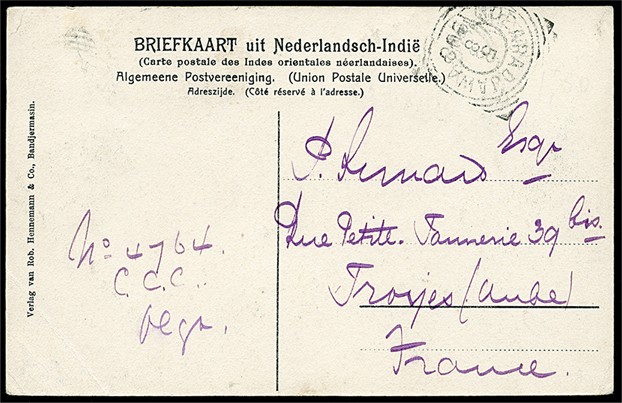 BRIEFKAART uit Nederlandsch-Indië
(Carte postale des Indes orientales néerlandaises).
Algemeene Postvereeniging. (Union Postale Universelle.)
Adreszijde. (Côté réservé à l'adresse.)
Verlag van Rob. Hennemann & Co., Bandjermasin.
Esqr
Rue Petite. Tannerie 39 bis.
Troyes (Aube)
France.
No 4764.
C.C.C.